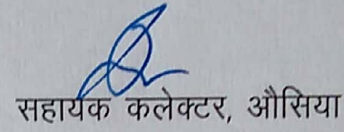 सहायक कलेक्टर, औसिया